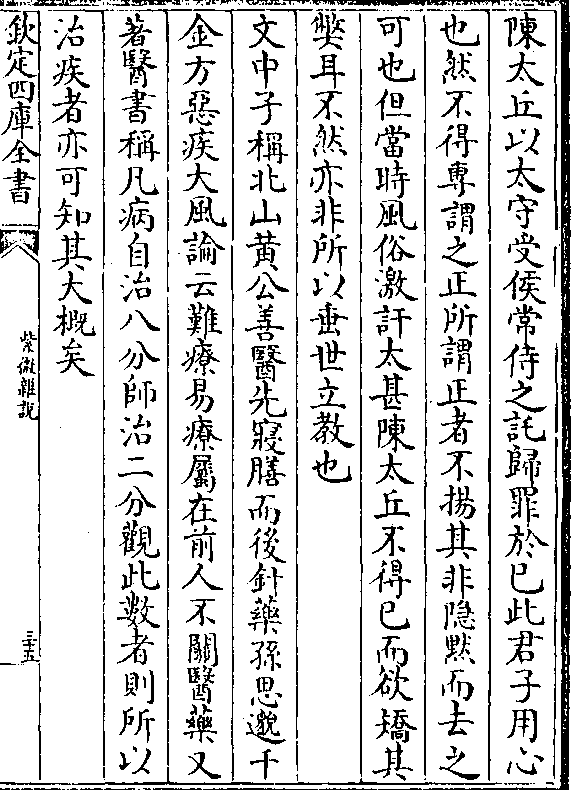 陳太丘以太守受侯常侍之託歸罪於已此君子用心
也然不得專謂之正所謂正者不揚其非隐黙而去之
可也但當時風俗激訐太甚陳太丘不得已而欲矯其
弊耳不然亦非所以垂世立教也
文中子稱北山黄公善醫先寢膳而後針藥孫思邈千
金方惡疾大風論云難療易療屬在前人不關醫藥又
著醫書稱凡病自治八分師治二分觀此數者則所以
治疾者亦可知其大概矣
欽定四庫全書
紫微雜說
三十五